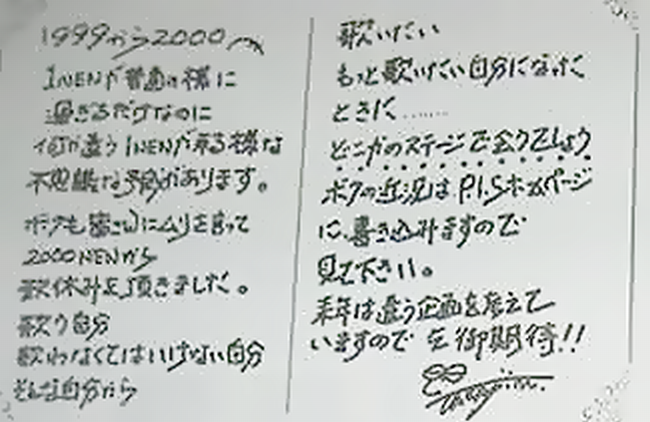 1999から2000へ
1NENが普通の様に
過ぎるだけなのに
何か違う1NENが来る様な
不思議な予感があります。
ボクも皆さんにムリを言って
2000NENから
歌休みを頂きました。
歌う自分
歌わなくてはいけない自分
そんな自分から
歌いたい
もっと歌いたい自分になった
ときに……
どこかのステージで会うでしょう
ボクの近況はP.I.Sホームページ
に書き込みますので
見て下さい。
来年は違う企画を考えて
いますので 乞御期待!!